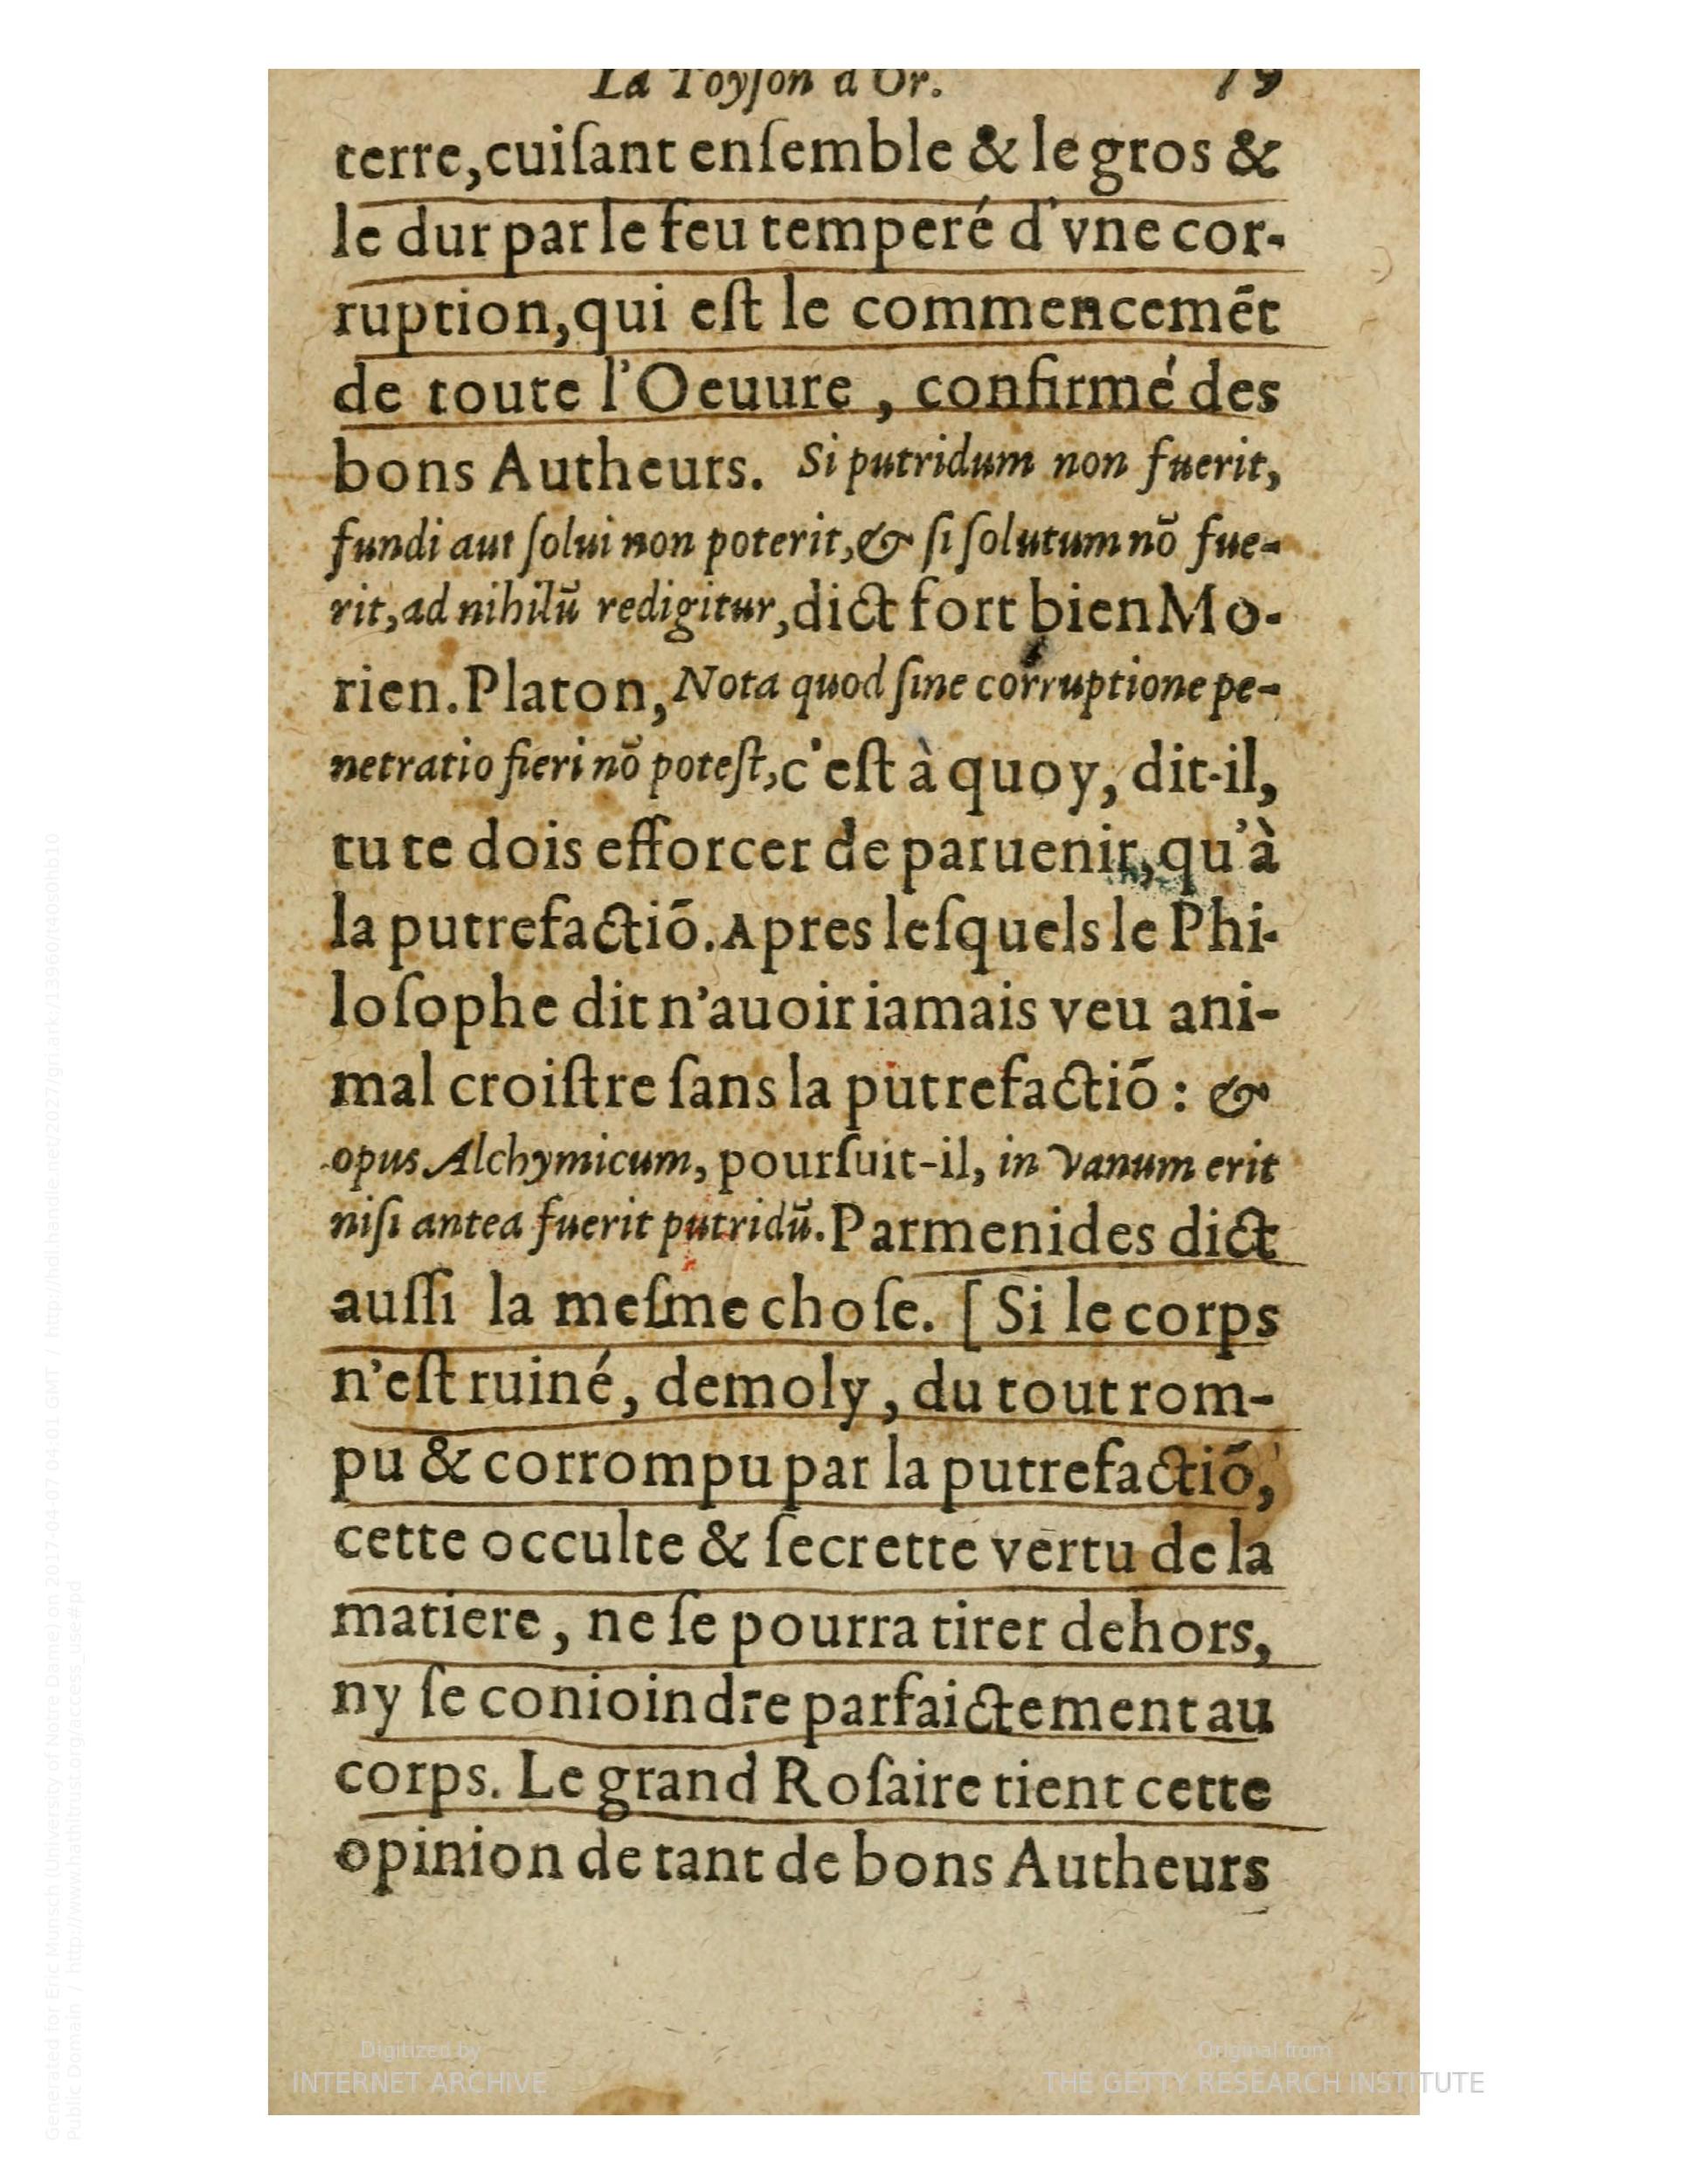 La Toyſon d'Or. 79
terre, cuiſant enſemble & le gros &
le dur par le feu temperé d'vne cor-
ruption, qui eſt le commencemēt
de toute l'Oeuure, confirmé des
bons Autheurs. Si putridum non fuerit,
fundi aut ſolui non poterit, & ſi ſolutum nō fue-
rit, ad nihilū redigitur, dict fort bien Mo-
rien. Platon, Nota quod ſine corruptione pe-
netratio fieri nō poteſt, c'eſt à quoy, dit-il,
tu te dois efforcer de paruenir, qu'à
la putrefactiō. Apres leſquels le Phi-
loſophe dit n'auoir iamais veu ani-
mal croiſtre ſans la putrefactiō : &
opus Alchymicum, pourſuit-il, in vanum erit
niſi antea fuerit putridū. Parmenides dict
auſſi la meſme choſe. [Si le corps
n'eſt ruiné, demoly, du tout rom-
pu & corrompu par la putrefactiō,
cette occulte & ſecrette vertu de la
matiere, ne ſe pourra tirer dehors,
ny ſe conioindre parfaictement au
corps. Le grand Roſaire tient cette
opinion de tant de bons Autheurs
Digitized by
INTERNET ARCHIVE
Original from
THE GETTY RESEARCH INSTITUTE
Generated for Eric Munsch (University of Notre Dame) on 2017-04-07 04:01 GMT / http://hdl.handle.net/2027/gri.ark:/13960/t40s0hb10
Public Domain / http://www.hathitrust.org/access_use#pd